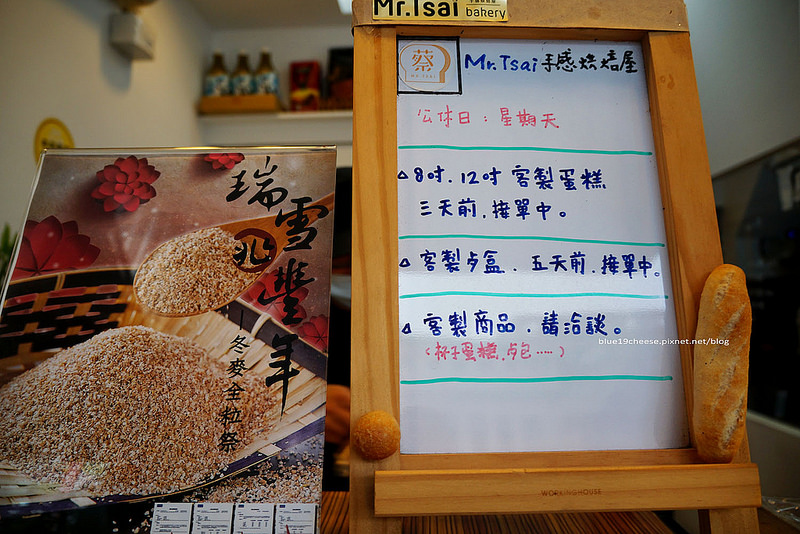 Mr.Tsai
bakery
蔡
MR.TSAI
Mr.Tsai手感烘焙屋
公休日：星期天
△8吋.12吋 客製蛋糕
三天前.接單中。
△客製点盒．五天前.接單中。
△客製商品．請洽談。
（杯子蛋糕.点包……）
blue19cheese.pixnet.net/blog
瑞雪兆豐年
冬麥全粒祭
WORKINGHOUSE